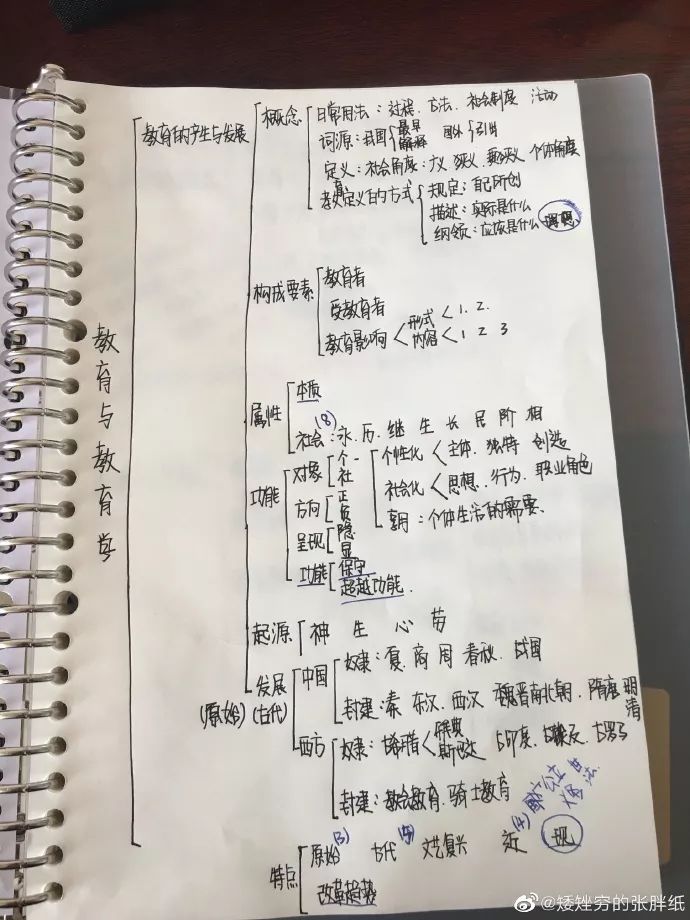 教育与教育学
教育的产生与发展
概念
日常用法：过程、方法、社会制度 活动
词源：我国 最早 解释 国外 引出
定义：社会角度：广义 狭义 更狭义 个体角度
教育定义的方式
规定：自己所创
描述：实际是什么
纲领：应该是什么 理想
构成要素
教育者
受教育者
教育影响 形式 1. 2.
内容 1 2 3
属性
本质
(8)
社会：永.历.继 生 长 民 阶 相
功能
对象 个 社
个性化 主体、独特 创造
社会化 思想、行为、职业角色
享用：个体生活的需要、
方向 正 负
呈现 隐 显
功能 保守
超越功能.
起源 神 生 心 劳
发展
(原始)(古代)
中国
奴隶：夏、商 周 春秋、战国
封建：秦 东汉、西汉 魏晋南北朝、隋唐 明清
西方
奴隶：古希腊 雅典 斯巴达 古印度、古埃及 古罗马
封建：教会教育、骑士教育
特点
原始(3) 古代 文艺复兴 近(4) 现
改革趋势
@矮矬穷的张胖纸